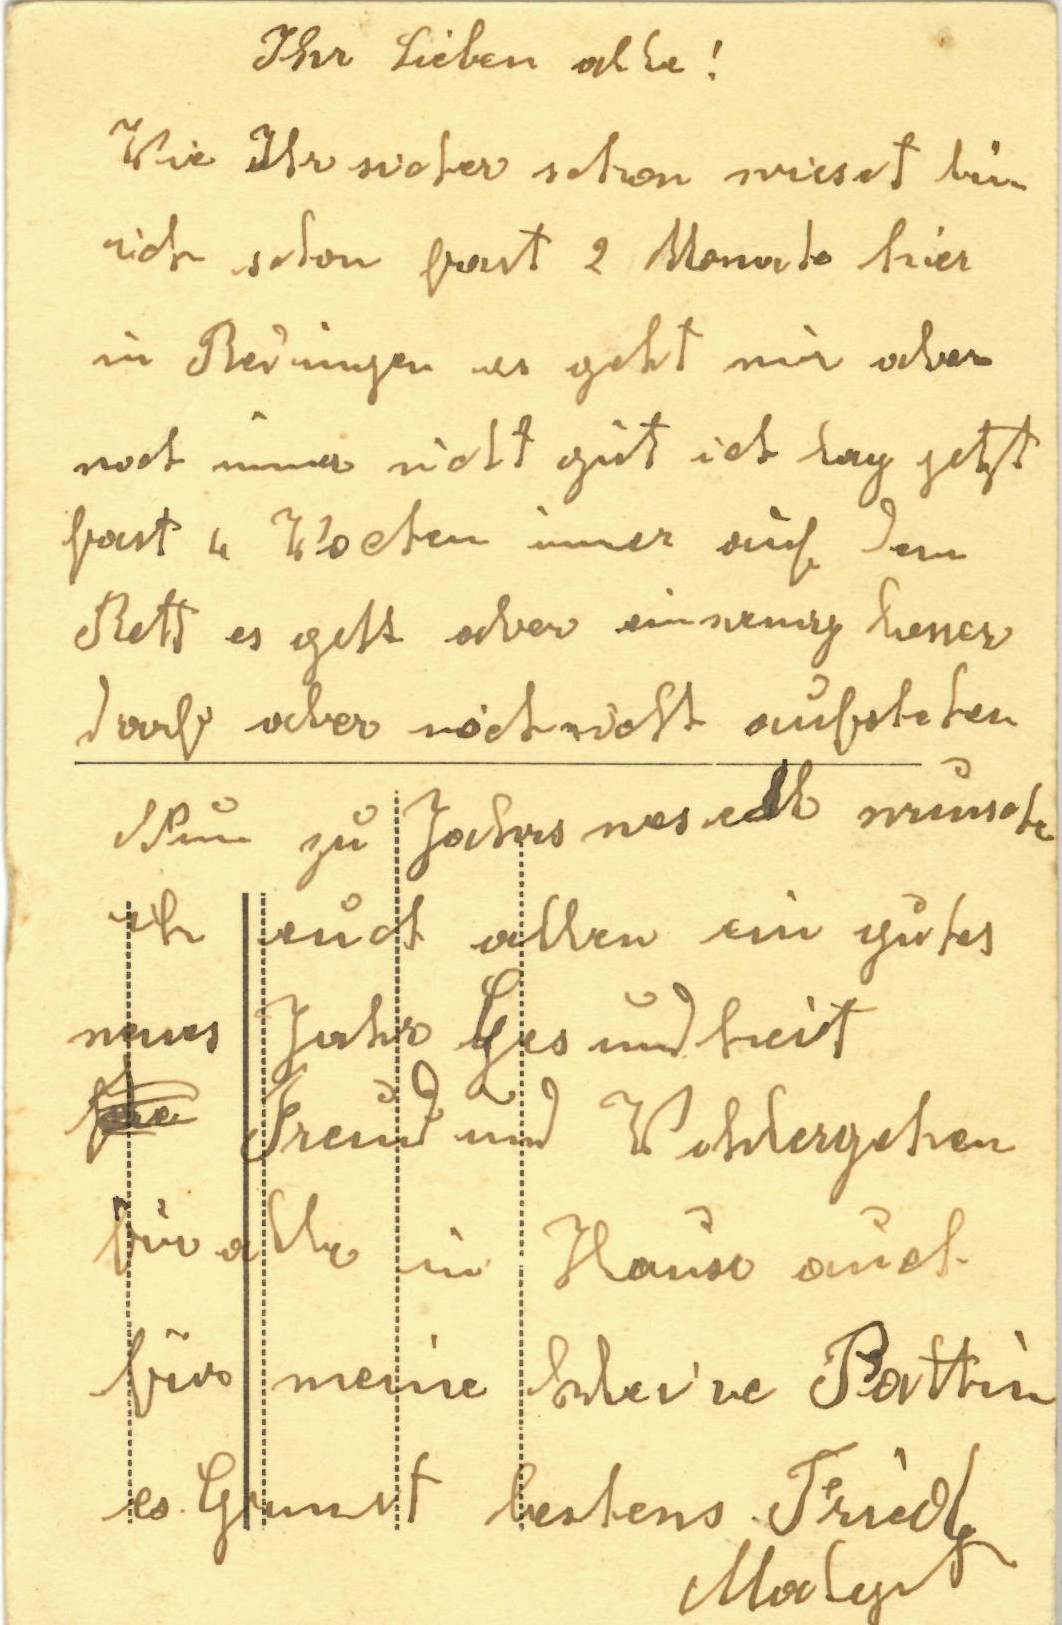 Ihr Lieben alle!
Wie Ihr sicher schon wiesst bin
ich schon fast 2 Monate hier
in es geht mir aber
noch imer nicht gut ich lag jetzt
fast 4 Wochen imer auf dem
Bett es geht aber einwenig besser
darf aber noch nicht aufstehen
Nun zu Jahrswesedl wünsche
ich euch allen ein gutes
neues Jahr Gesundheit
Freud und Wohlergehen
für alle in Hause auch
für meine kleine Pattin
es Grusst bestens